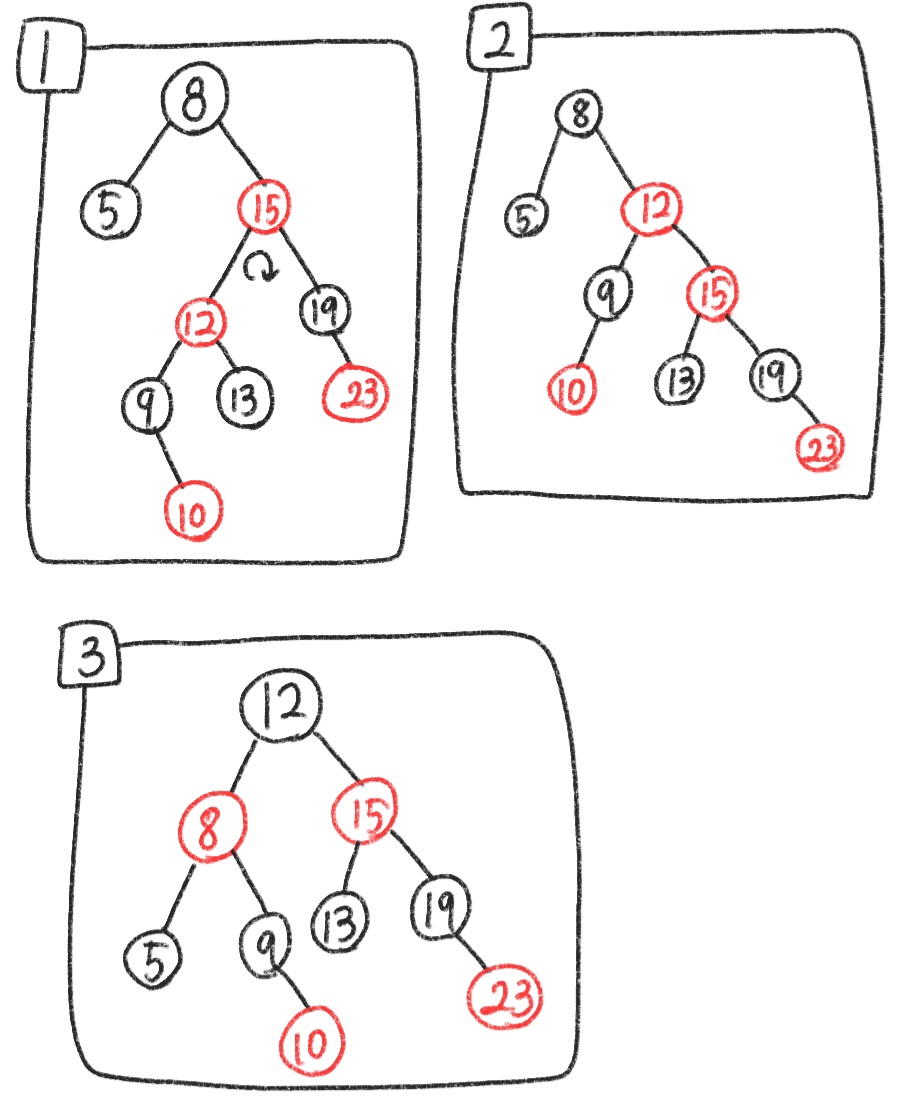 1
8
5 15
12 19
9 13 23
10
2
8
5 12
9 15
10 13 19
23
3
12
8 15
5 9 13 19
10 23